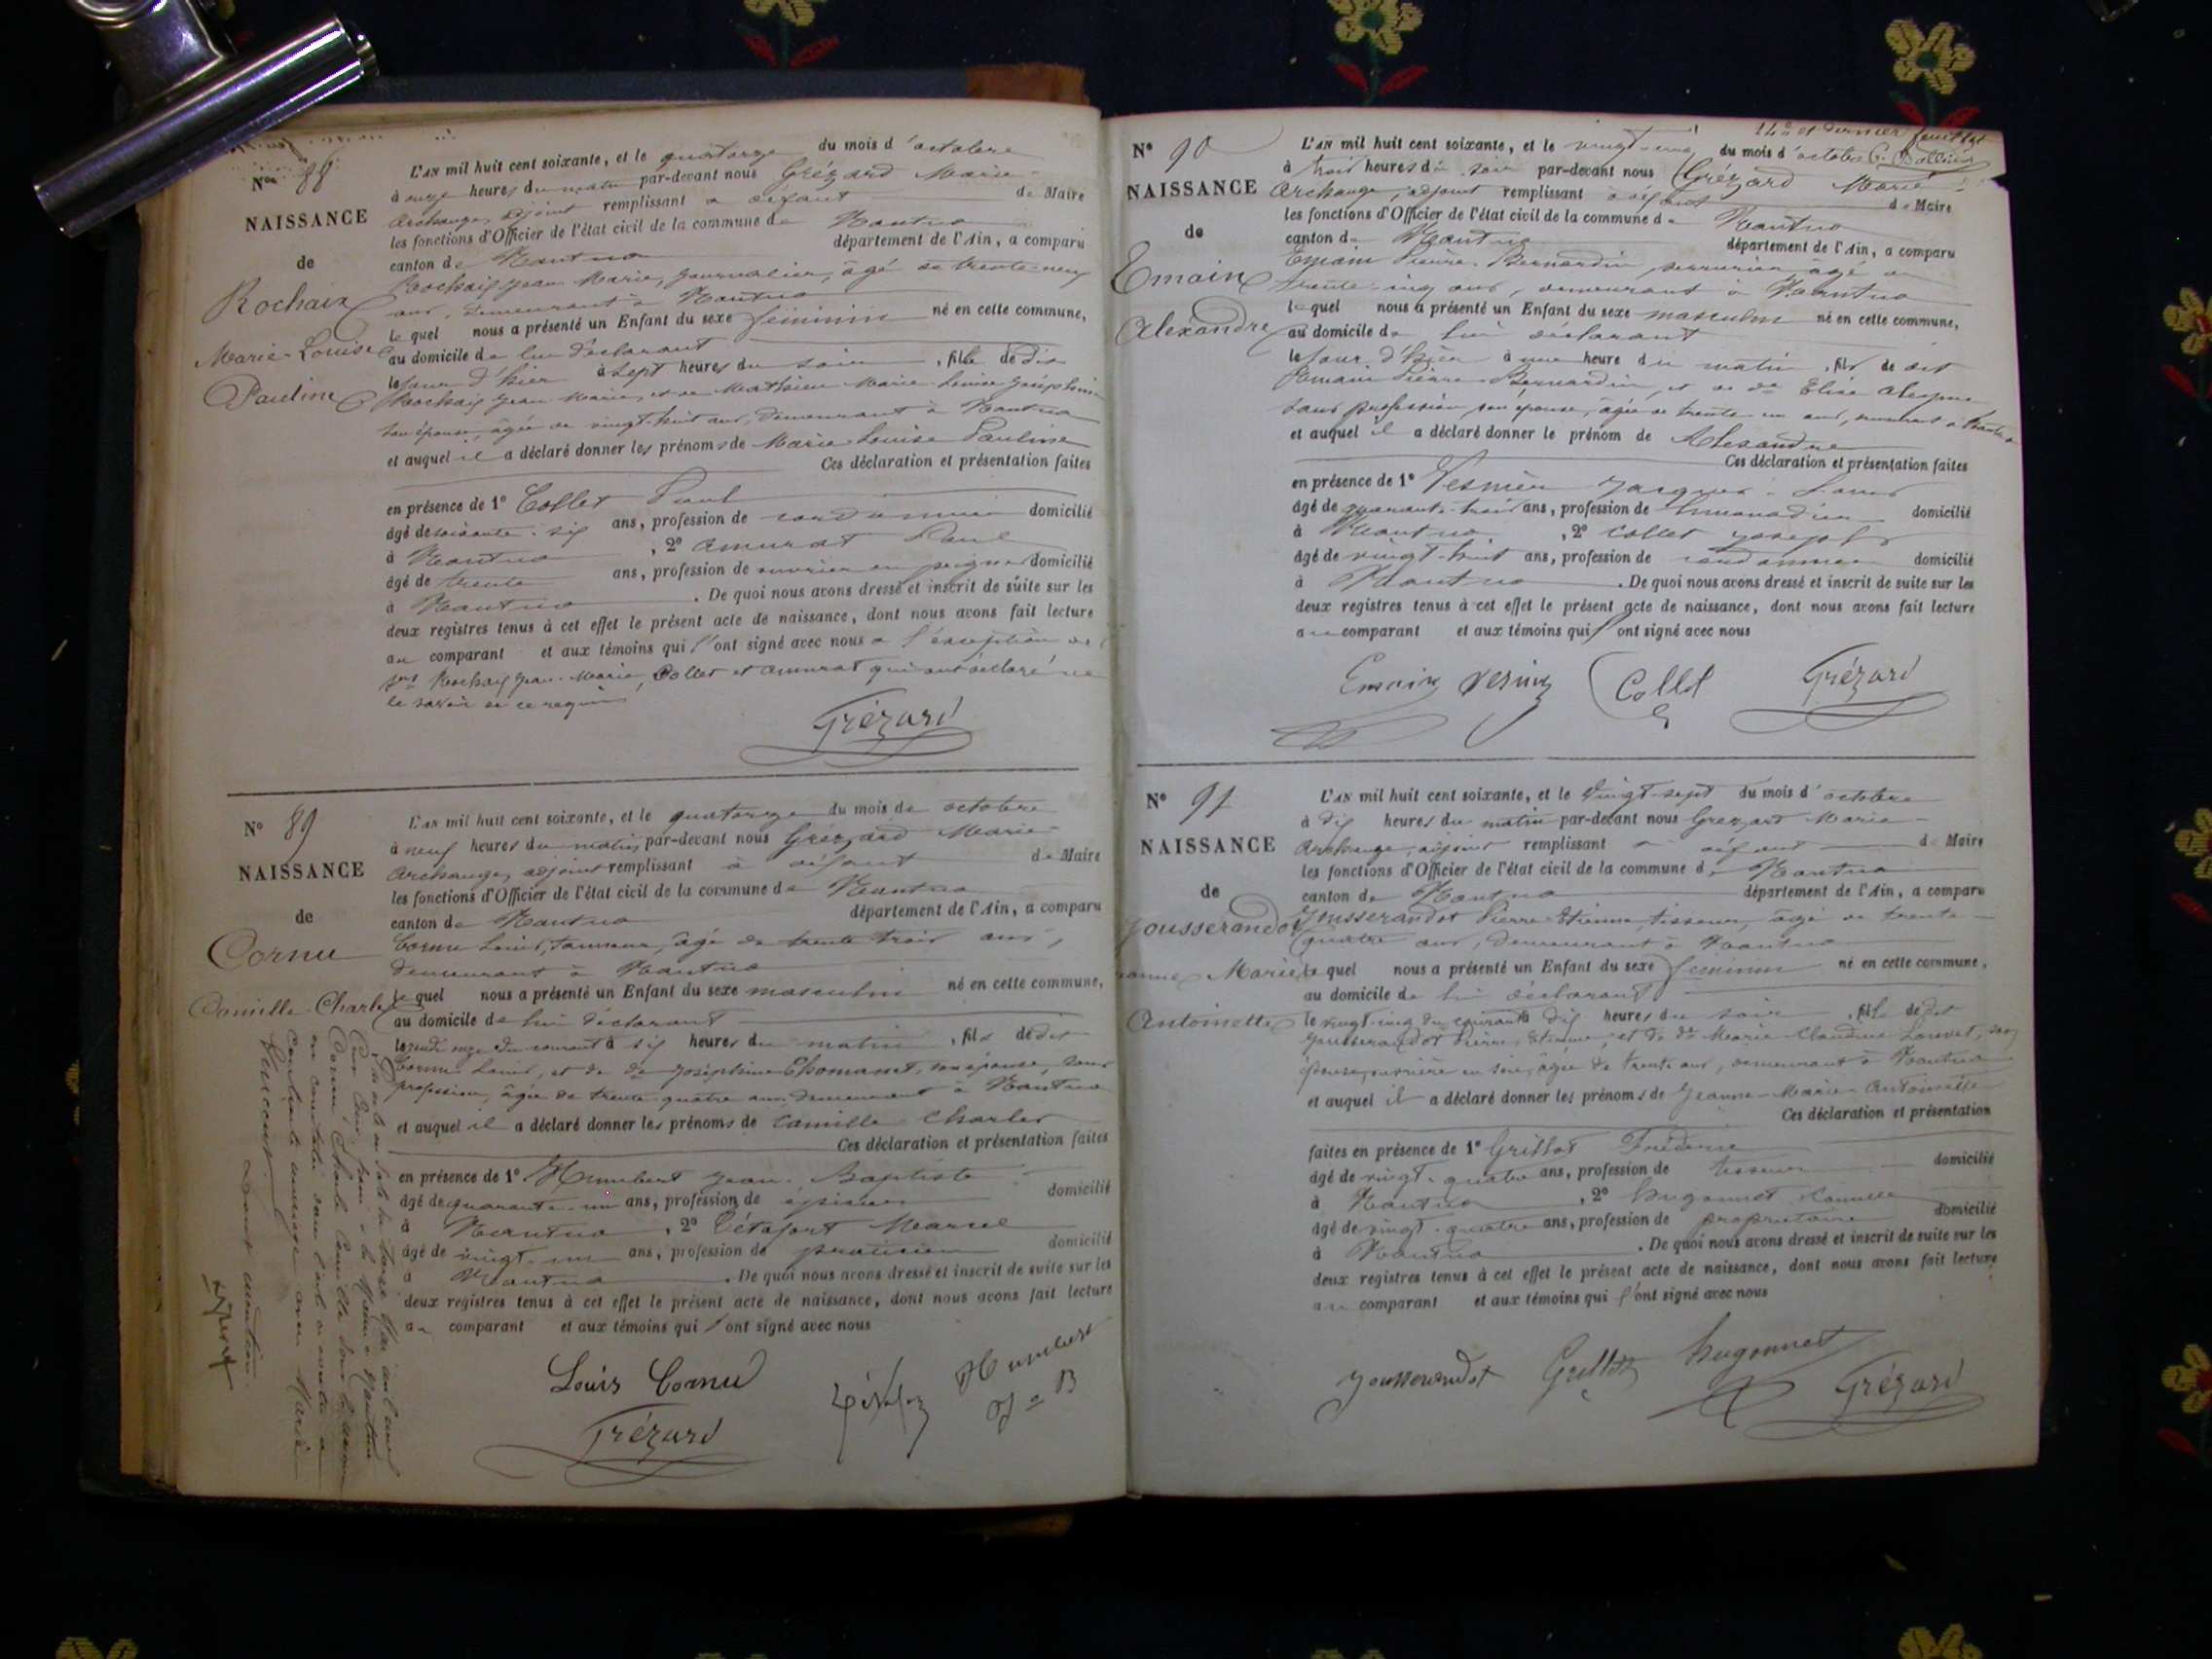 N° 88
NAISSANCE
de
Rochaix
Marie-Louise
Pauline
L'AN mil huit cent soixante, et le quatorze du mois d'octobre
à onze heures du matin par-devant nous Grézard Marie-
Archange, adjoint remplissant à défaut de Maire
les fonctions d'Officier de l'état civil de la commune de Nantua
canton de Nantua département de l'Ain, a comparu
Rochaix Jean Marie, journalier, âgé de trente-neuf
ans, demeurant à Nantua
lequel nous a présenté un Enfant du sexe féminin né en cette commune,
au domicile de lui déclarant
le jour d'hier à sept heures du soir, fille de dit
Rochaix Jean Marie, et de Mathieu Marie-Louise Joséphine
son épouse, âgée de vingt-huit ans, demeurant à Nantua
et auquel il a déclaré donner les prénoms de Marie Louise Pauline
Ces déclaration et présentation faites
en présence de 1° Collet Paul
âgé de soixante-six ans, profession de cordonnier domicilié
à Nantua, 2° Amurat Paul
âgé de trente ans, profession de ouvrier en peignes domicilié
à Nantua. De quoi nous avons dressé et inscrit de suite sur les
deux registres tenus à cet effet le présent acte de naissance, dont nous avons fait lecture
au comparant et aux témoins qui l'ont signé avec nous à l'exception de
Rochaix Jean-Marie, Collet et Amurat qui ont déclaré ne
le savoir de ce requis
Grézard
N° 89
NAISSANCE
de
Cornu
Camille-Charles
L'AN mil huit cent soixante, et le quatorze du mois de octobre
à neuf heures du matin par-devant nous Grézard Marie-
Archange, adjoint remplissant à défaut de Maire
les fonctions d'Officier de l'état civil de la commune de Nantua
canton de Nantua département de l'Ain, a comparu
Cornu Louis, tanneur, âgé de trente trois ans,
demeurant à Nantua
lequel nous a présenté un Enfant du sexe masculin né en cette commune,
au domicile de lui déclarant
le jeudi onze du courant à six heures du matin, fils de dit
Cornu Louis, et de de Joséphine Thomasset, son épouse, sans
profession, âgée de trente-quatre ans, demeurant à Nantua
et auquel il a déclaré donner les prénoms de Camille Charles
Ces déclaration et présentation faites
en présence de 1° Humbert Jean-Baptiste
âgé de quarante-un ans, profession de épicier domicilié
à Nantua, 2° Détafort Marcel
âgé de vingt-un ans, profession de praticien domicilié
à Nantua. De quoi nous avons dressé et inscrit de suite sur les
deux registres tenus à cet effet le présent acte de naissance, dont nous avons fait lecture
au comparant et aux témoins qui l'ont signé avec nous
Louis Cornu
Humbert
J-B
Grézard
N° 90
NAISSANCE
de
Emain
Alexandre
et dernier feuillet
L'AN mil huit cent soixante, et le vingt-cinq du mois d'octobre
à trois heures du soir par-devant nous Grézard Marie
Archange, adjoint remplissant à défaut de Maire
les fonctions d'Officier de l'état civil de la commune de Nantua
canton de Nantua département de l'Ain, a comparu
Emain Pierre-Bernardin, serrurier, âgé de
trente-cinq ans, demeurant à Nantua
lequel nous a présenté un Enfant du sexe masculin né en cette commune,
au domicile de lui déclarant
le jour d'hier à une heure du matin, fils de dit
Emain Pierre-Bernardin, et de de Elise
sans profession, son épouse, âgée de trente-un ans, demeurant à Nantua
et auquel il a déclaré donner le prénom de Alexandre
Ces déclaration et présentation faites
en présence de 1° Vesnier Jacques-Louis
âgé de quarante-trois ans, profession de limonadier domicilié
à Nantua, 2° Collet Joseph
âgé de vingt-huit ans, profession de cordonnier domicilié
à Nantua. De quoi nous avons dressé et inscrit de suite sur les
deux registres tenus à cet effet le présent acte de naissance, dont nous avons fait lecture
au comparant et aux témoins qui l'ont signé avec nous
Emain Collet Grézard
N° 91
NAISSANCE
de
Jousserandot
Jeanne Marie
Antoinette
L'AN mil huit cent soixante, et le vingt-sept du mois d'octobre
à dix heures du matin par-devant nous Grézard Marie-
Archange, adjoint remplissant à défaut de Maire
les fonctions d'Officier de l'état civil de la commune de Nantua
canton de Nantua département de l'Ain, a comparu
Jousserandot Pierre-Etienne, tisseur, âgé de trente-
quatre ans, demeurant à Nantua
lequel nous a présenté un Enfant du sexe féminin né en cette commune,
au domicile de lui déclarant
le vingt-cinq du courant à dix heures du soir, fille de dit
Jousserandot Pierre-Etienne, et de de Marie-Claudine Louvet, son
épouse, ouvrière en soie, âgée de trente ans, demeurant à Nantua
et auquel il a déclaré donner les prénoms de Jeanne-Marie-Antoinette
Ces déclaration et présentation
faites en présence de 1° Grillot Frédéric
âgé de vingt-quatre ans, profession de tisseur domicilié
à Nantua, 2° hugonnet Camille
âgé de vingt-quatre ans, profession de propriétaire domicilié
à Nantua. De quoi nous avons dressé et inscrit de suite sur les
deux registres tenus à cet effet le présent acte de naissance, dont nous avons fait lecture
au comparant et aux témoins qui l'ont signé avec nous
Jousserandot Grillot hugonnet
Grézard